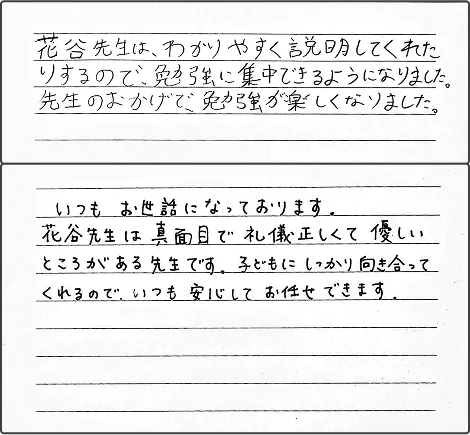 花谷先生は、わかりやすく説明してくれた
りするので、勉強に集中できるようになりました。
先生のおかげで、勉強が楽しくなりました。
いつも お世話になっております.
花谷先生は 真面目で 礼儀正しくて 優しい
ところがある先生です. 子どもに しっかり向き合って
くれるので、いつも 安心して お任せできます.